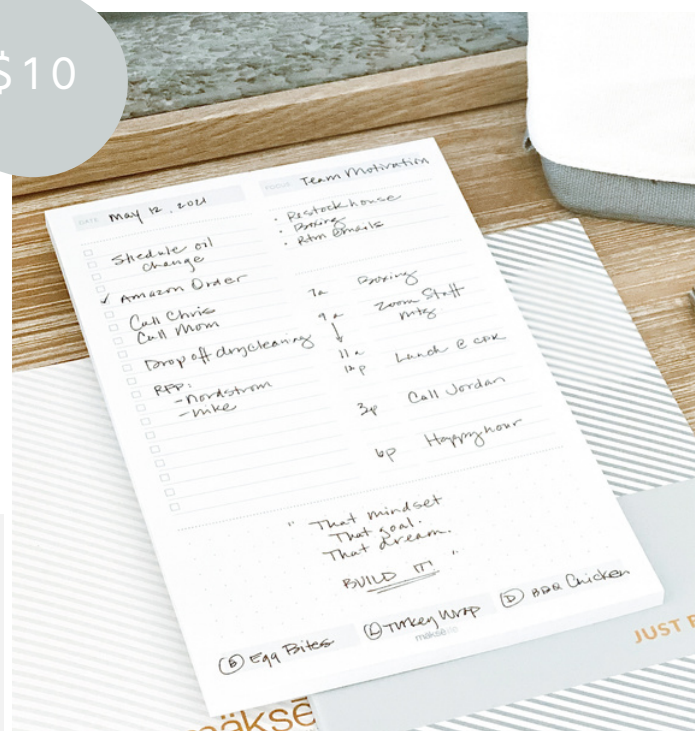 $10
DATE May 12, 2021
FOCUS Team Motivation
Shedule oil
change
✓ Amazon Order
Call Chris
Call Mom
Drop off drycleaning
RFP:
- nordstrom
- nike
• Restock house
• Boxing
• Rtrn Emails
7a Boxing
9a Zoom Staff
mtg
11a
12p Lunch @ CPK
3p Call Jordan
6p Happy hour
" That mindset
That goal.
That dream.
BUILD IT! "
(B) Egg Bites (L) Turkey Wrap (D) BBQ Chicken
mäksēlife
JUST
mäksē